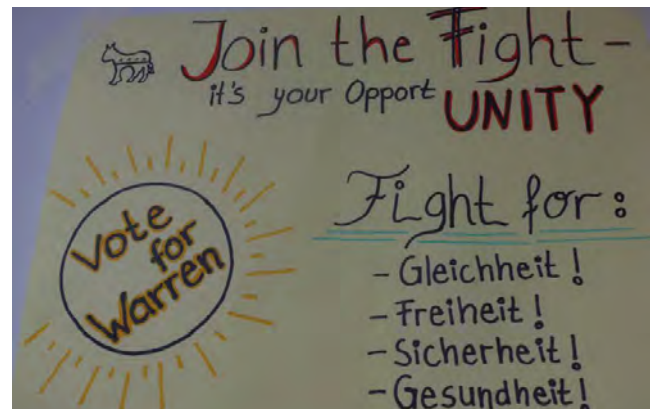 Join the Fight -
it's your Opport UNITY
Vote
for
Warren
Fight for:
- Gleichheit!
- Freiheit!
- Sicherheit!
- Gesundheit!